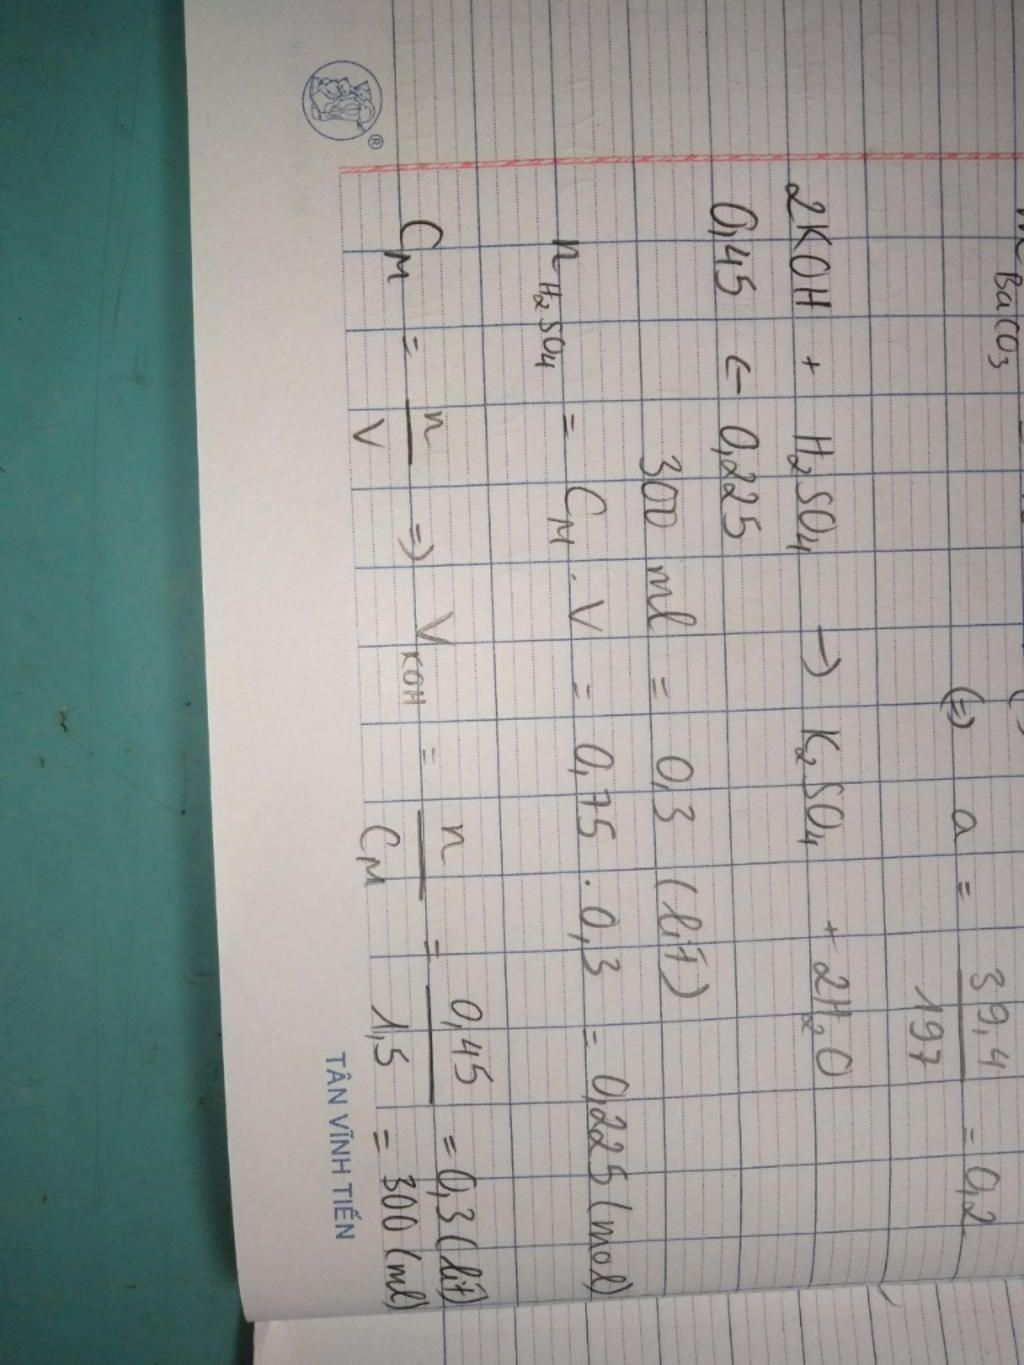 BaCO3
(=) a = 39,4 / 197 = 0,2
2KOH + H2SO4 → K2SO4 + 2H2O
0,45 ← 0,225
300 ml = 0,3 (lít)
nH2SO4 = CM . V = 0,75 . 0,3 = 0,225 (mol)
CM = n / V => VKOH = n / CM = 0,45 / 1,5 = 0,3 (lít)
= 300 (ml)
®
TÂN VĨNH TIẾN